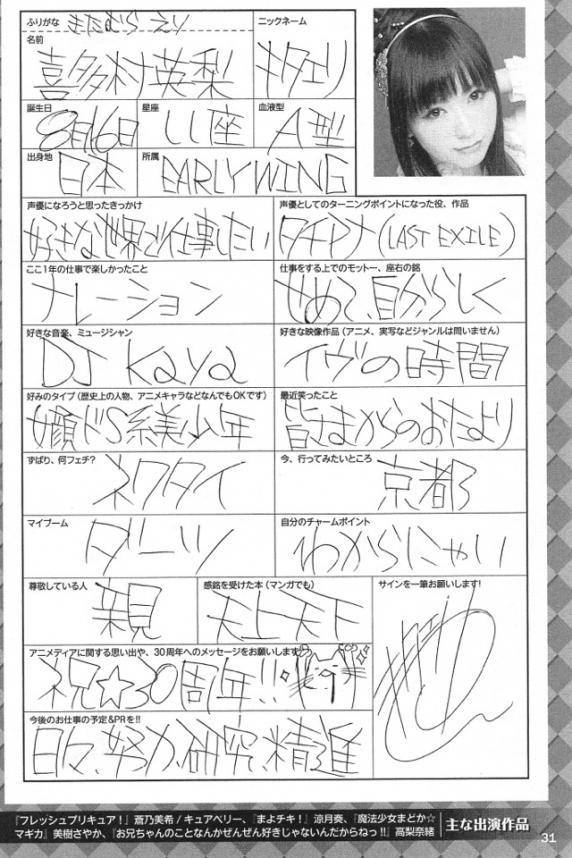 ふりがな きたむら えり
ニックネーム
名前 喜多村英梨
キタエリ
誕生日 8月16日
星座 しし座
血液型 A型
出身地 日本
所属 EARLY WING
声優になろうと思ったきっかけ
好きな世界で仕事したい
声優としてのターニングポイントになった役、作品
タチアナ(LAST EXILE)
ここ1年の仕事で楽しかったこと
ナレーション
仕事をする上でのモットー、座右の銘
せめて、自分らしく
好きな音楽、ミュージシャン
DJ Kaya
好きな映像作品(アニメ、実写などジャンルは問いません)
イヴの時間
好みのタイプ(歴史上の人物、アニメキャラなどなんでもOKです)
女顔ドS系美少年
最近笑ったこと
皆さまからのおたより
ずばり、何フェチ?
ネクタイ
今、行ってみたいところ
京都
マイブーム
ダーツ
自分のチャームポイント
わからにゃい
尊敬している人
親
感銘を受けた本(マンガでも)
天上天下
サインを一筆お願いします!
アニメディアに関する思い出や、30周年へのメッセージをお願いします
祝☆30周年!!
今後のお仕事の予定&PRを!!
日々、努力、研究、精進
『フレッシュプリキュア!』蒼乃美希/キュアベリー、『まよチキ!』涼月奏、『魔法少女まどか☆
マギカ』美樹さやか、『お兄ちゃんのことなんかぜんぜん好きじゃないんだからねっ!!』高梨奈緒
主な出演作品
31